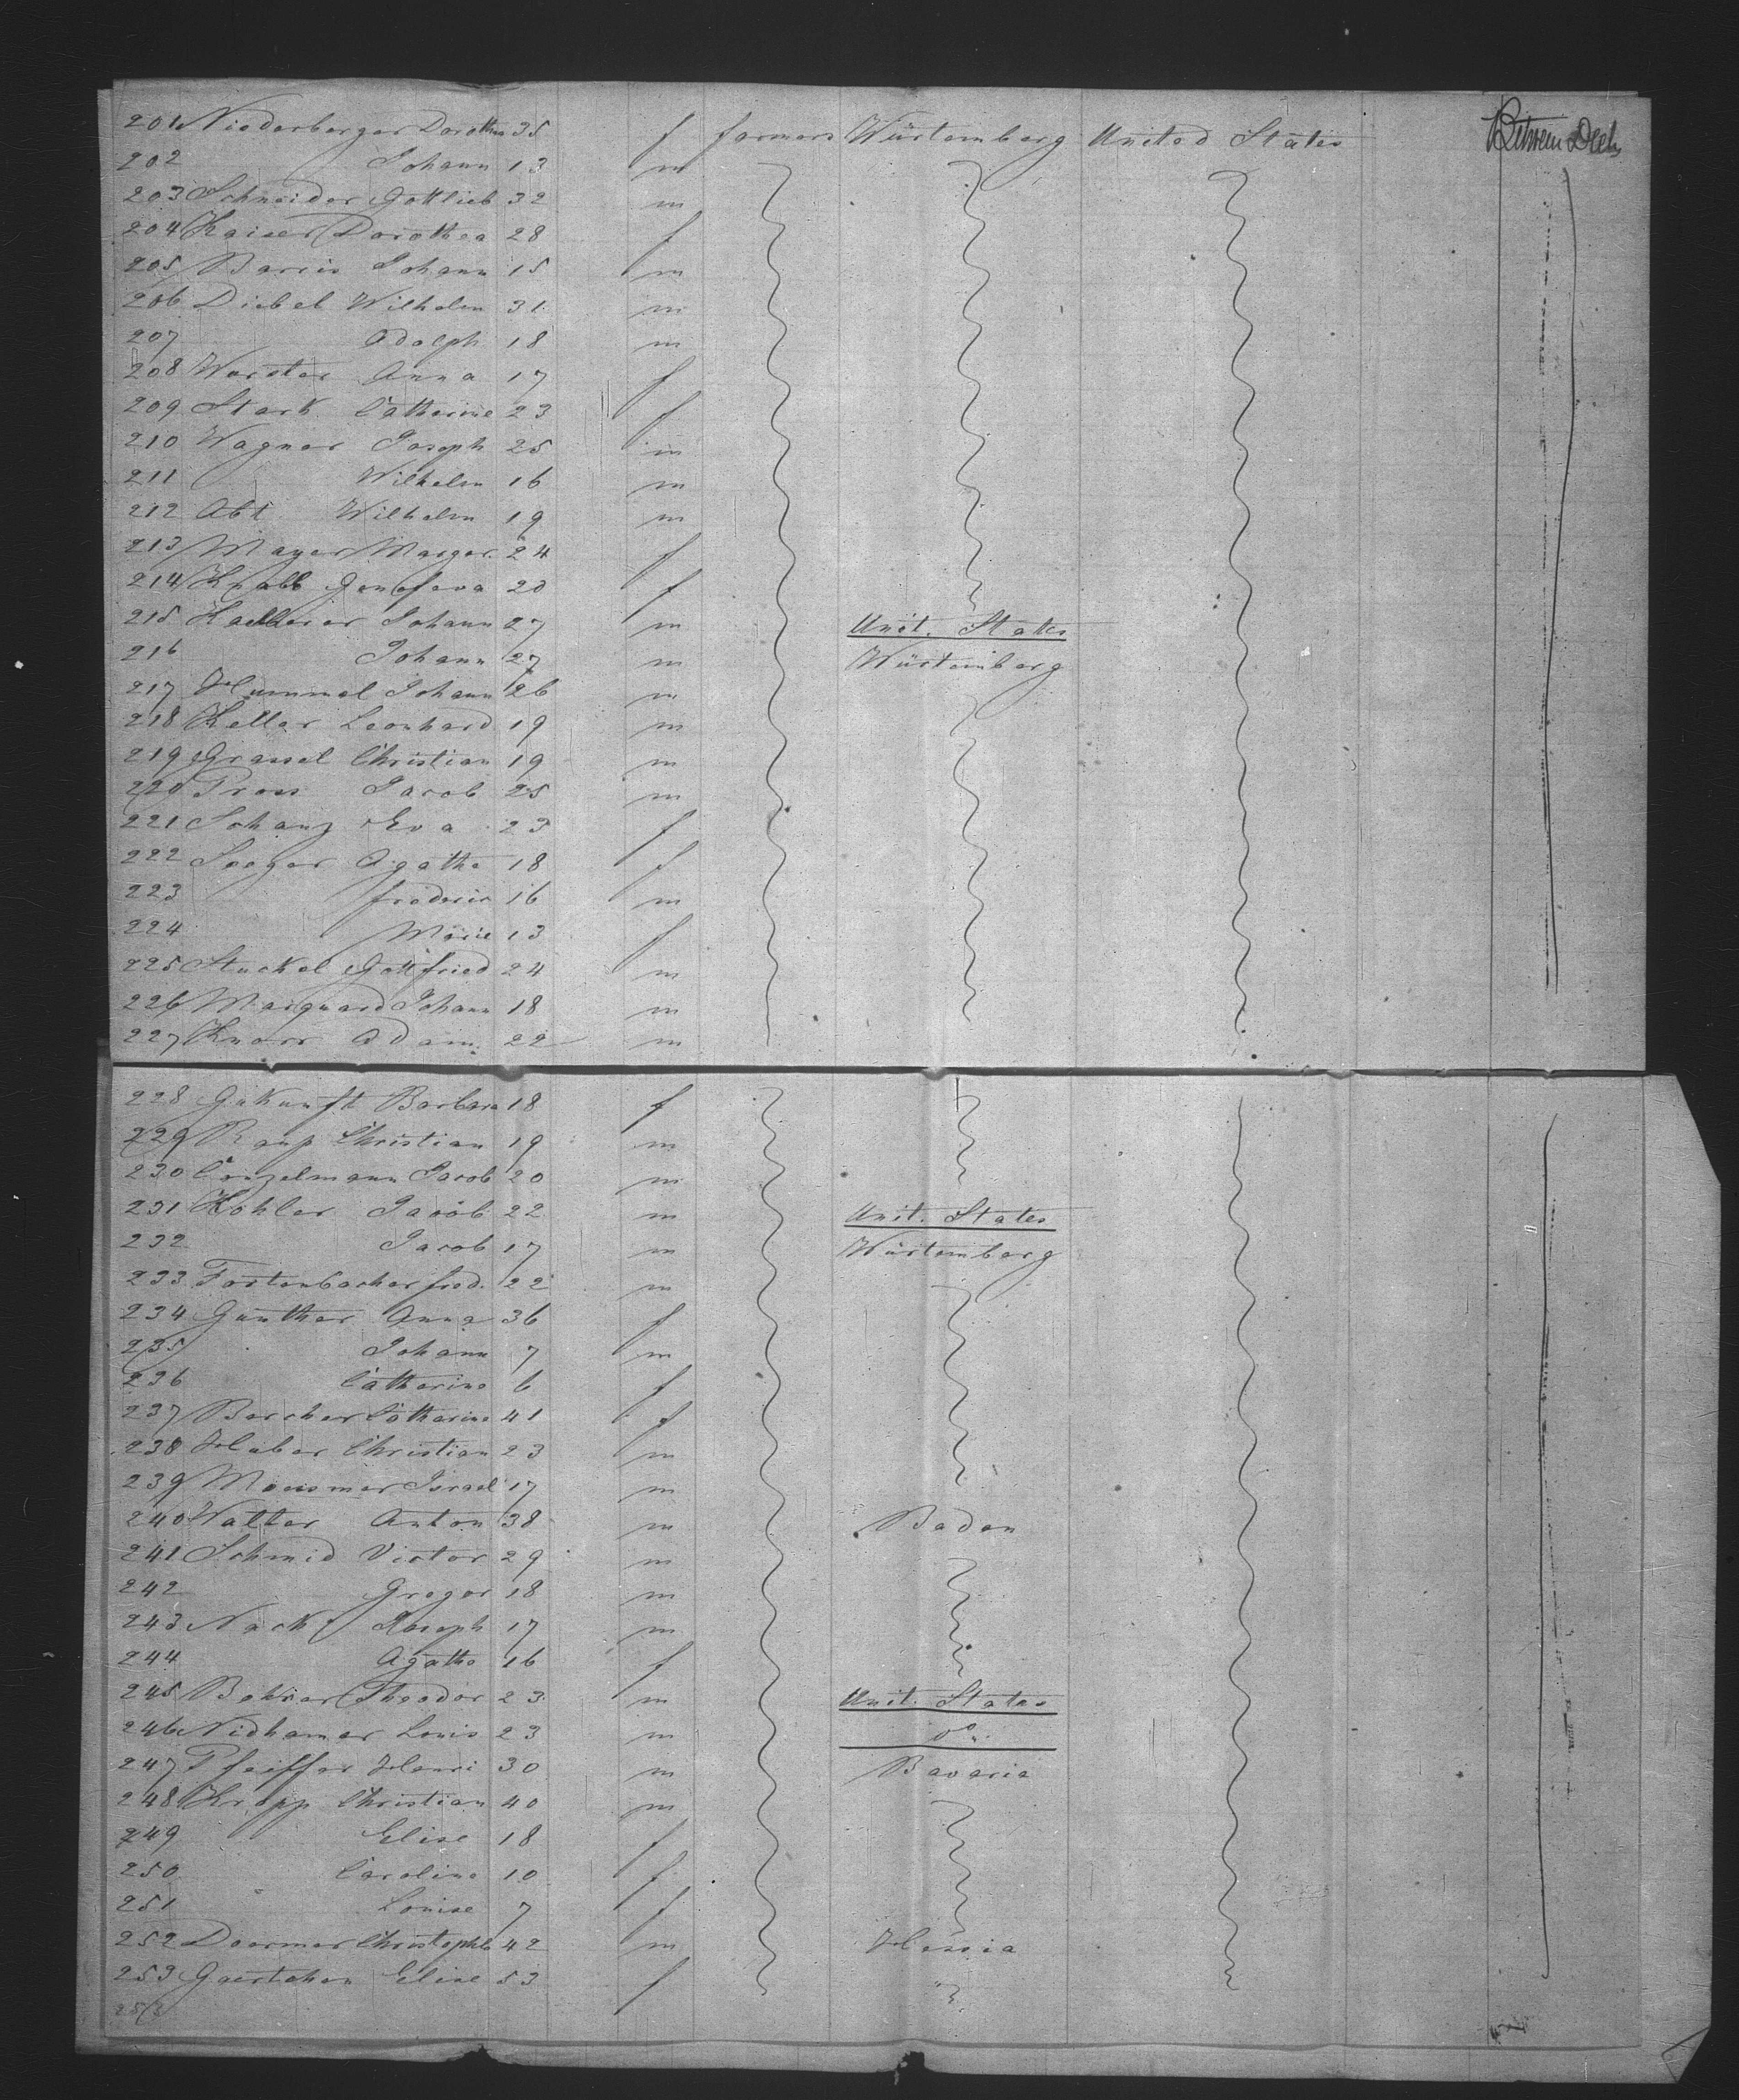 201 Niederberger Dorothea 35 f farmers Würtemberg United States Between Decks
202 Johann 13 m
203 Schneider Gottlieb 32 m
204 Kaiser Dorothea 28 f
205 Johann 15 m
206 Diebel Wilhelm 31 m
207 Adolph 18 m
208 Worster Anna 17 f
209 Stark Catherine 23 f
210 Wagner Joseph 25 m
211 Wilhelm 16 m
212 Abt Wilhelm 19 m
213 Mayer Marger. 24 f
214 Knabb Genofeva 20 f
215 Johann 27 m Unit. States
216 Johann 27 m Würtemberg
217 Hummel Johann 26 m
218 Keller Leonhard 19 m
219 Grassel Christian 19 m
220 Pross Jacob 25 m
221 Schanz Eva 23 f
222 Seeger Agathe 18 f
223 frederic 16 m
224 Marie 13 f
225 Stuckel Gottfried 24 m
226 Marquard Johann 18 m
227 Knorr Adam 22 m
228 Gukunft Barbara 18 f
229 Raup Christian 19 m
230 Conzelmann Jacob 20 m
231 Kohler Jacob 22 m Unit. States
232 Jacob 17 m Würtemberg
233 Fortenbacher fred. 22 m
234 Gunther Anna 36 f
235 Johann 7 m
236 Catherine 6 f
237 Borcher Catherine 41 f
238 Huber Christian 23 m
239 Messmer Israel 17 m
240 Walter Anton 38 m Baden
241 Schmid Victor 29 m
242 Gregor 18 m
243 Nock Joseph 17 m
244 Agathe 16 f
245 Theodor 23 m Unit. States
246 Nidhamer Louis 23 m do
247 Pfeiffer Henri 30 m Bavaria
248 Kropp Christian 40 m
249 Elise 18 f
250 Caroline 10 f
251 Louise 7 f
252 Doermer Christophe 42 m Hessia
253 Gaertchen Elise 53 f "
253